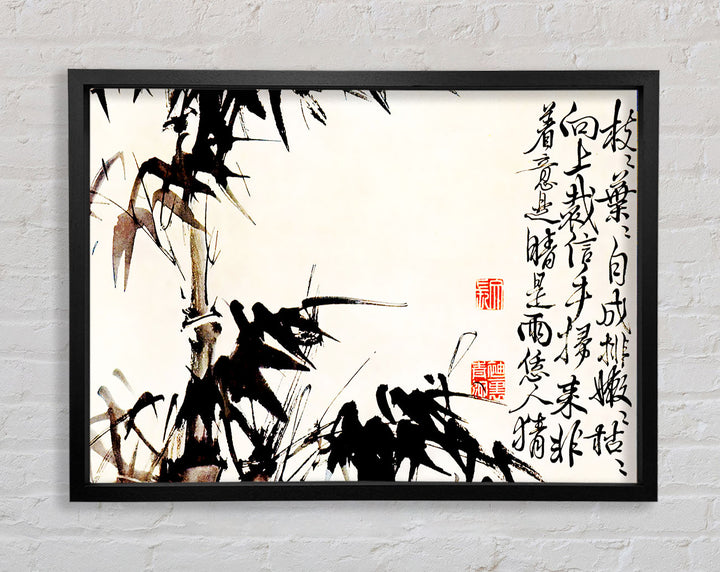 枝〻葉〻自成排嫩〻枯〻
向上裁信手掃来非
着意是晴是雨恁人猜
文長